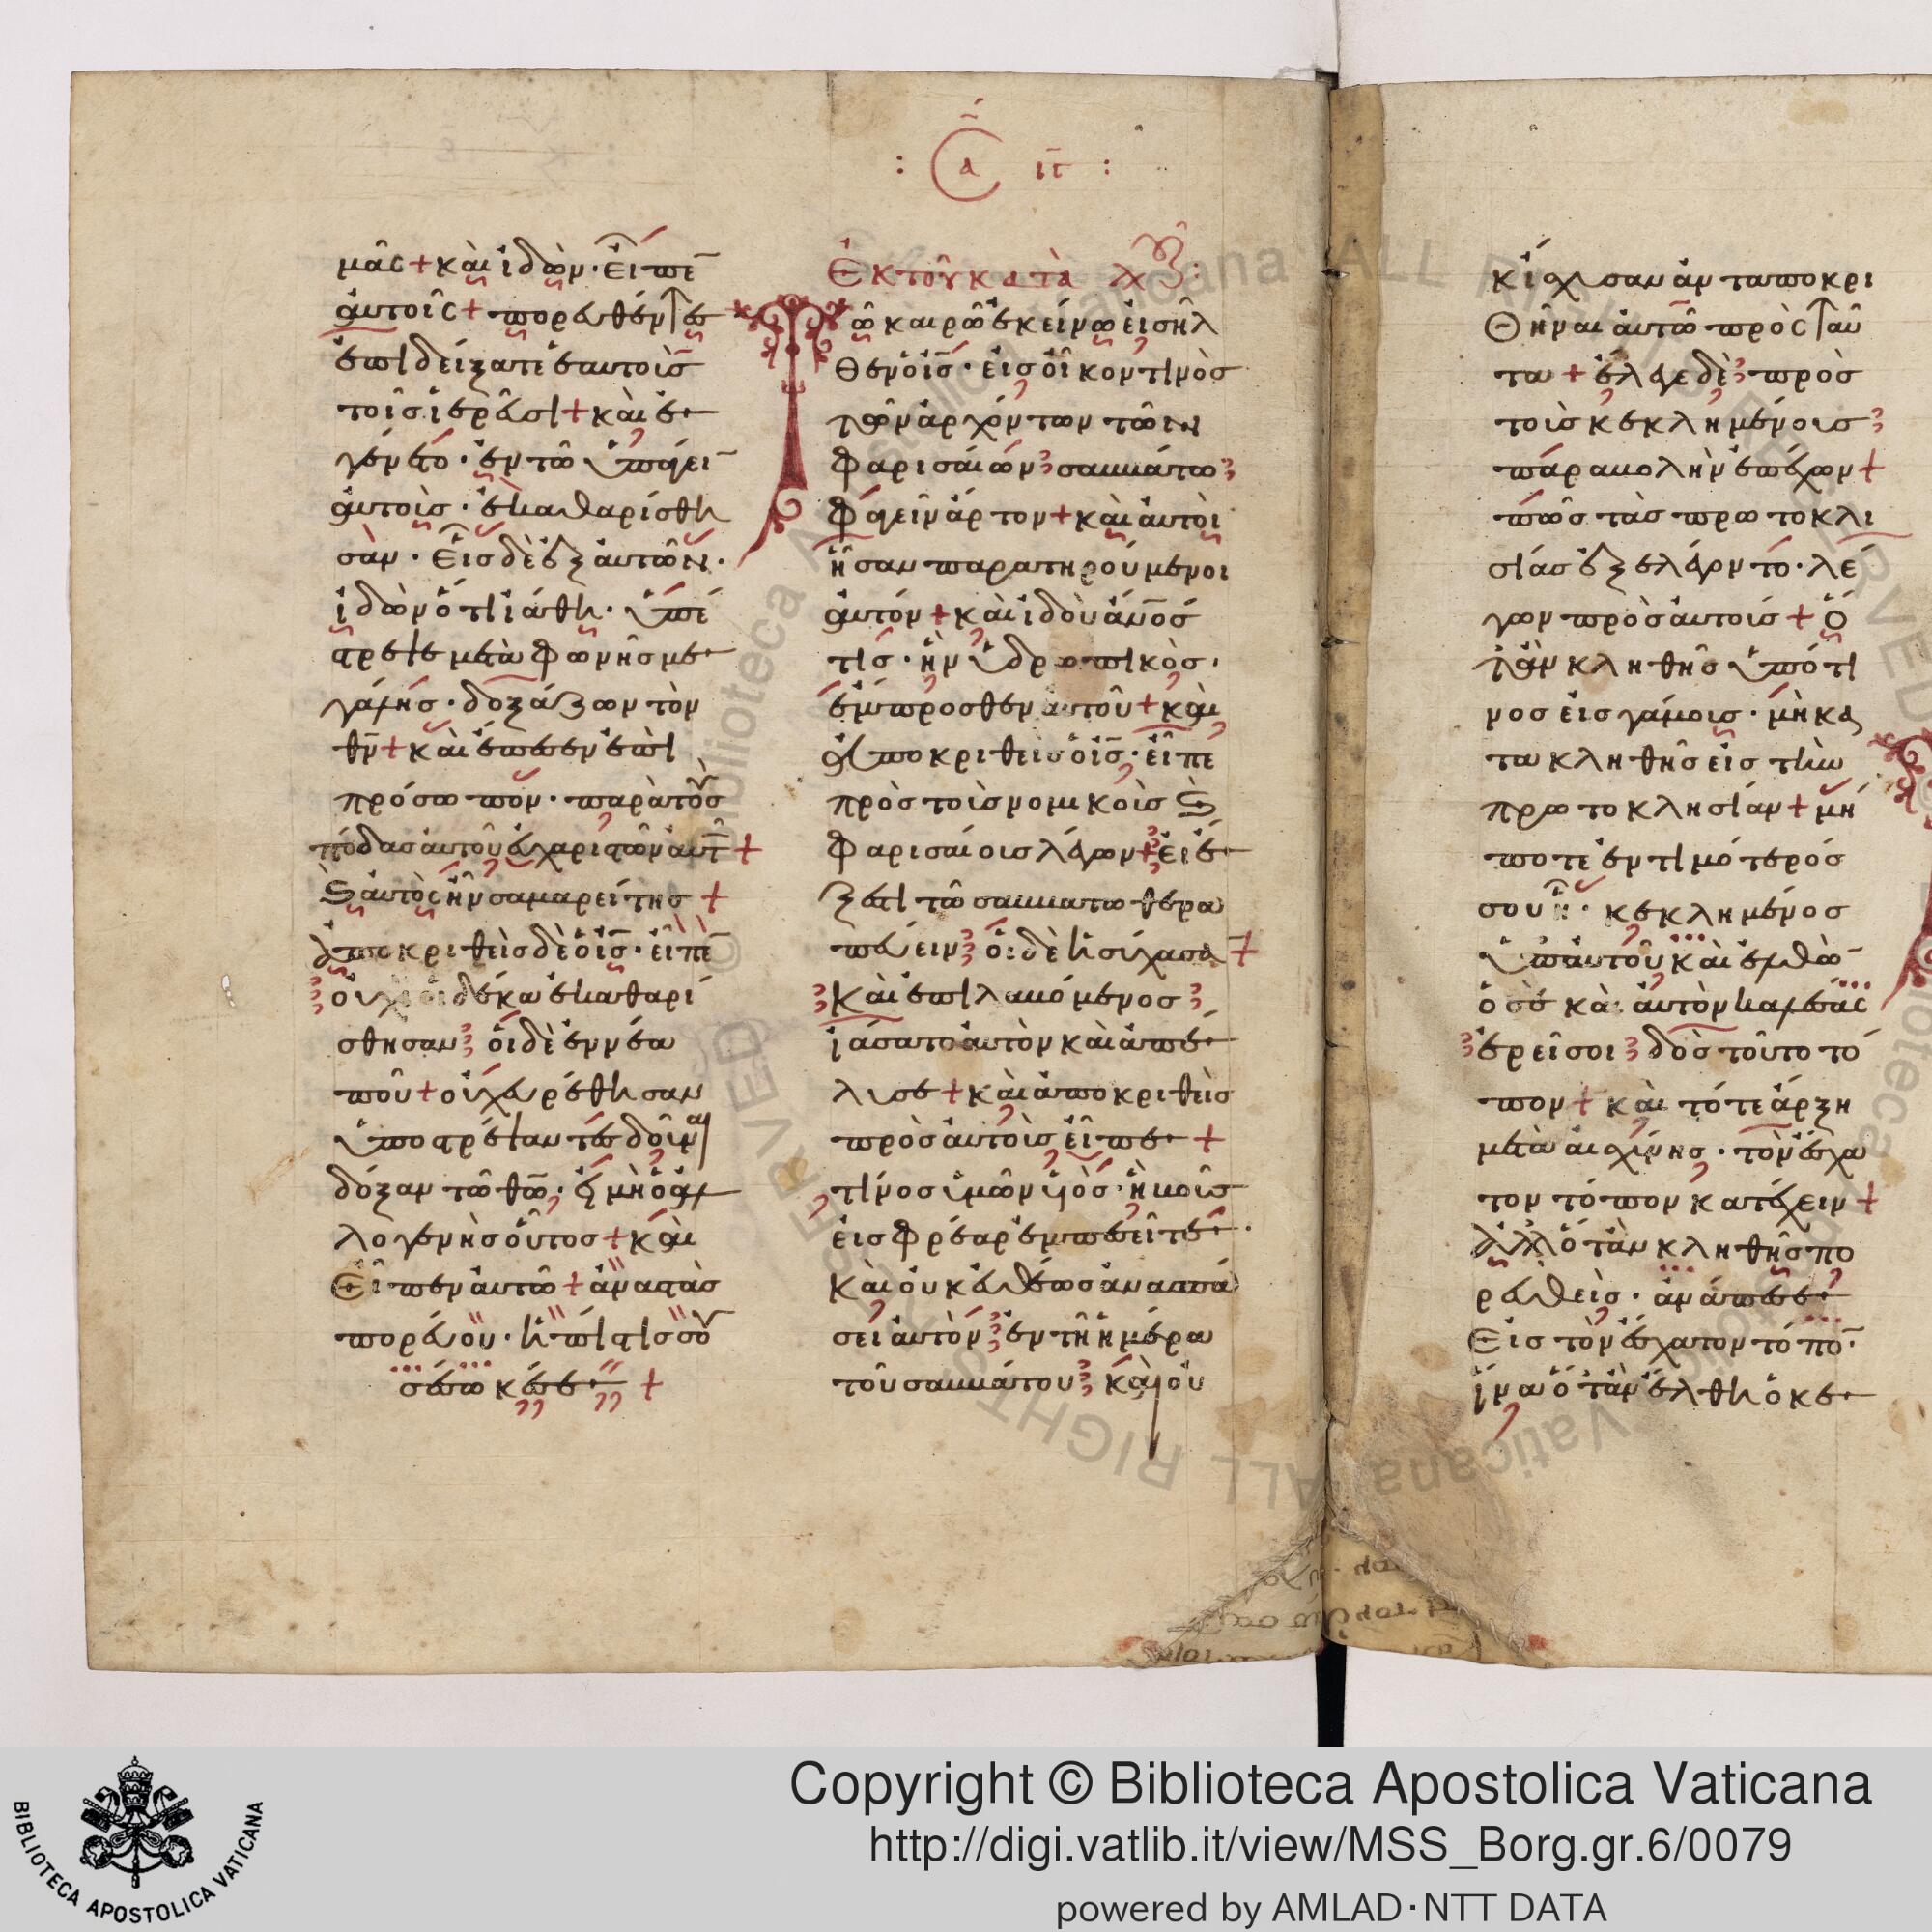 : Σα ιγ :
μᾶς + καὶ ἰδὼν · εἶπε
αὐτοῖς + πορευθέντ(ες)
ἐπιδείξατε ἑαυτοὺς
τοῖς ἱερεῦσι + καὶ ἐ
γένετο · ἐν τῶ ὑπάγει
αὐτοὺς · ἐκαθαρίσθη
σαν · Εἷς δὲ ἐξ αὐτῶν ·
ἰδὼν ὅτι ἰάθη · ὑπέ
στρεψε μετὰ φωνῆς με
γάλης · δοξάζων τὸν
θν + καὶ ἔπεσεν ἐπὶ
πρόσωπον · παρὰ τοὺς
πόδας αὐτοῦ εὐχαριστῶν αὐτ +
ϗ αὐτὸς ἦν σαμαρείτης +
ἀποκριθεὶς δὲ ὁ ις · εἶπε
οὐχὶ οἱ δέκα ἐκαθαρί
σθησαν οἱ δὲ ἐννέα
ποῦ + οὐχ εὑρέθησαν
ὑποστρέψαντες δοῦναι
δόξαν τῶ θῶ · εἰ μὴ ὁ ἀλ
λογενὴς οὗτος + καὶ
Εἶπεν αὐτῶ + ἀναστὰς
πορεύου · ἡ πίστις σου
σέσωκέ σε +
Ἐκ τοῦ κατὰ Λουκ :
Τῶ καιρῶ ἐκείνω εἰσῆλ
θεν ὁ ις · εἰς οἶκον τινὸς
τῶν ἀρχόντων τῶν
Φαρισαίων σαββάτω
Φαγεῖν ἄρτον + καὶ αὐτοὶ
ἦσαν παρατηρούμενοι
αὐτόν + καὶ ἰδοὺ ἀνος
τὶς · ἦν ὑδρωπικὸς ·
ἔμπροσθεν αὐτοῦ + καὶ
ἀποκριθεὶς ὁ ις · εἶπε
πρὸς τοὺς νομικοὺς ϗ
Φαρισαίους λέγων + εἰ ἔ
ξεστι τῶ σαββάτω θερα
πεύειν οἱ δὲ ἡσύχασα +
Καὶ ἐπιλαβόμενος
ἰάσατο αὐτὸν καὶ ἀπέ
λυσε + καὶ ἀποκριθεὶς
πρὸς αὐτοὺς εἶπε +
τίνος ὑμῶν υἱὸς · ἢ βοῦς
εἰς φρέαρ ἐμπεσεῖται ·
Καὶ οὐκ εὐθέως ἀνασπά
σει αὐτὸν ἐν τῆ ἡμέρα
τοῦ σαββάτου καὶ οὐ
κ ἴσχυσαν ἀνταποκρι
Θῆναι αὐτῶ πρὸς ταῦ
τα + ἔλεγε δὲ πρὸς
τοὺς κεκλημένους
παραβολὴν ἐπέχων +
πῶς τὰς πρωτοκλι
σίας ἐξελέγοντο · λέ
γων πρὸς αὐτούς + ὅ
τὰν κληθῆς ὑπό τι
νος εἰς γάμους · μὴ κα
τακληθῆς εἰς τὴν
πρωτοκλησίαν + μή
ποτε ἐντιμότερός
σου ἦ · κεκλημένος
ὑπ αὐτοῦ καὶ ἐλθὼ
ὁ σὲ καὶ αὐτὸν καλέσας
ἐρεῖ σοι δὸς τοῦτο τό
πον + καὶ τότε ἄρξη
μετὰ αἰσχύνης · τὸν ἔσχα
τον τόπον κατέχειν +
Ἀλλ ὅταν κληθῆς πο
ρευθεὶς · ἀνάπεσε
Εἰς τὸν ἔσχατον τόπο ·
ἵνα ὅταν ἔλθη ὁ κε
BIBLIOTECA APOSTOLICA VATICANA
Copyright © Biblioteca Apostolica Vaticana
http://digi.vatlib.it/view/MSS_Borg.gr.6/0079
powered by AMLAD·NTT DATA